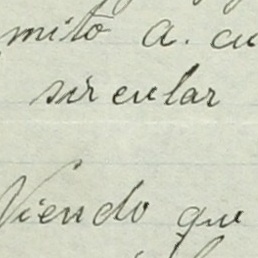 mito a. cu
sircular
Viendo que